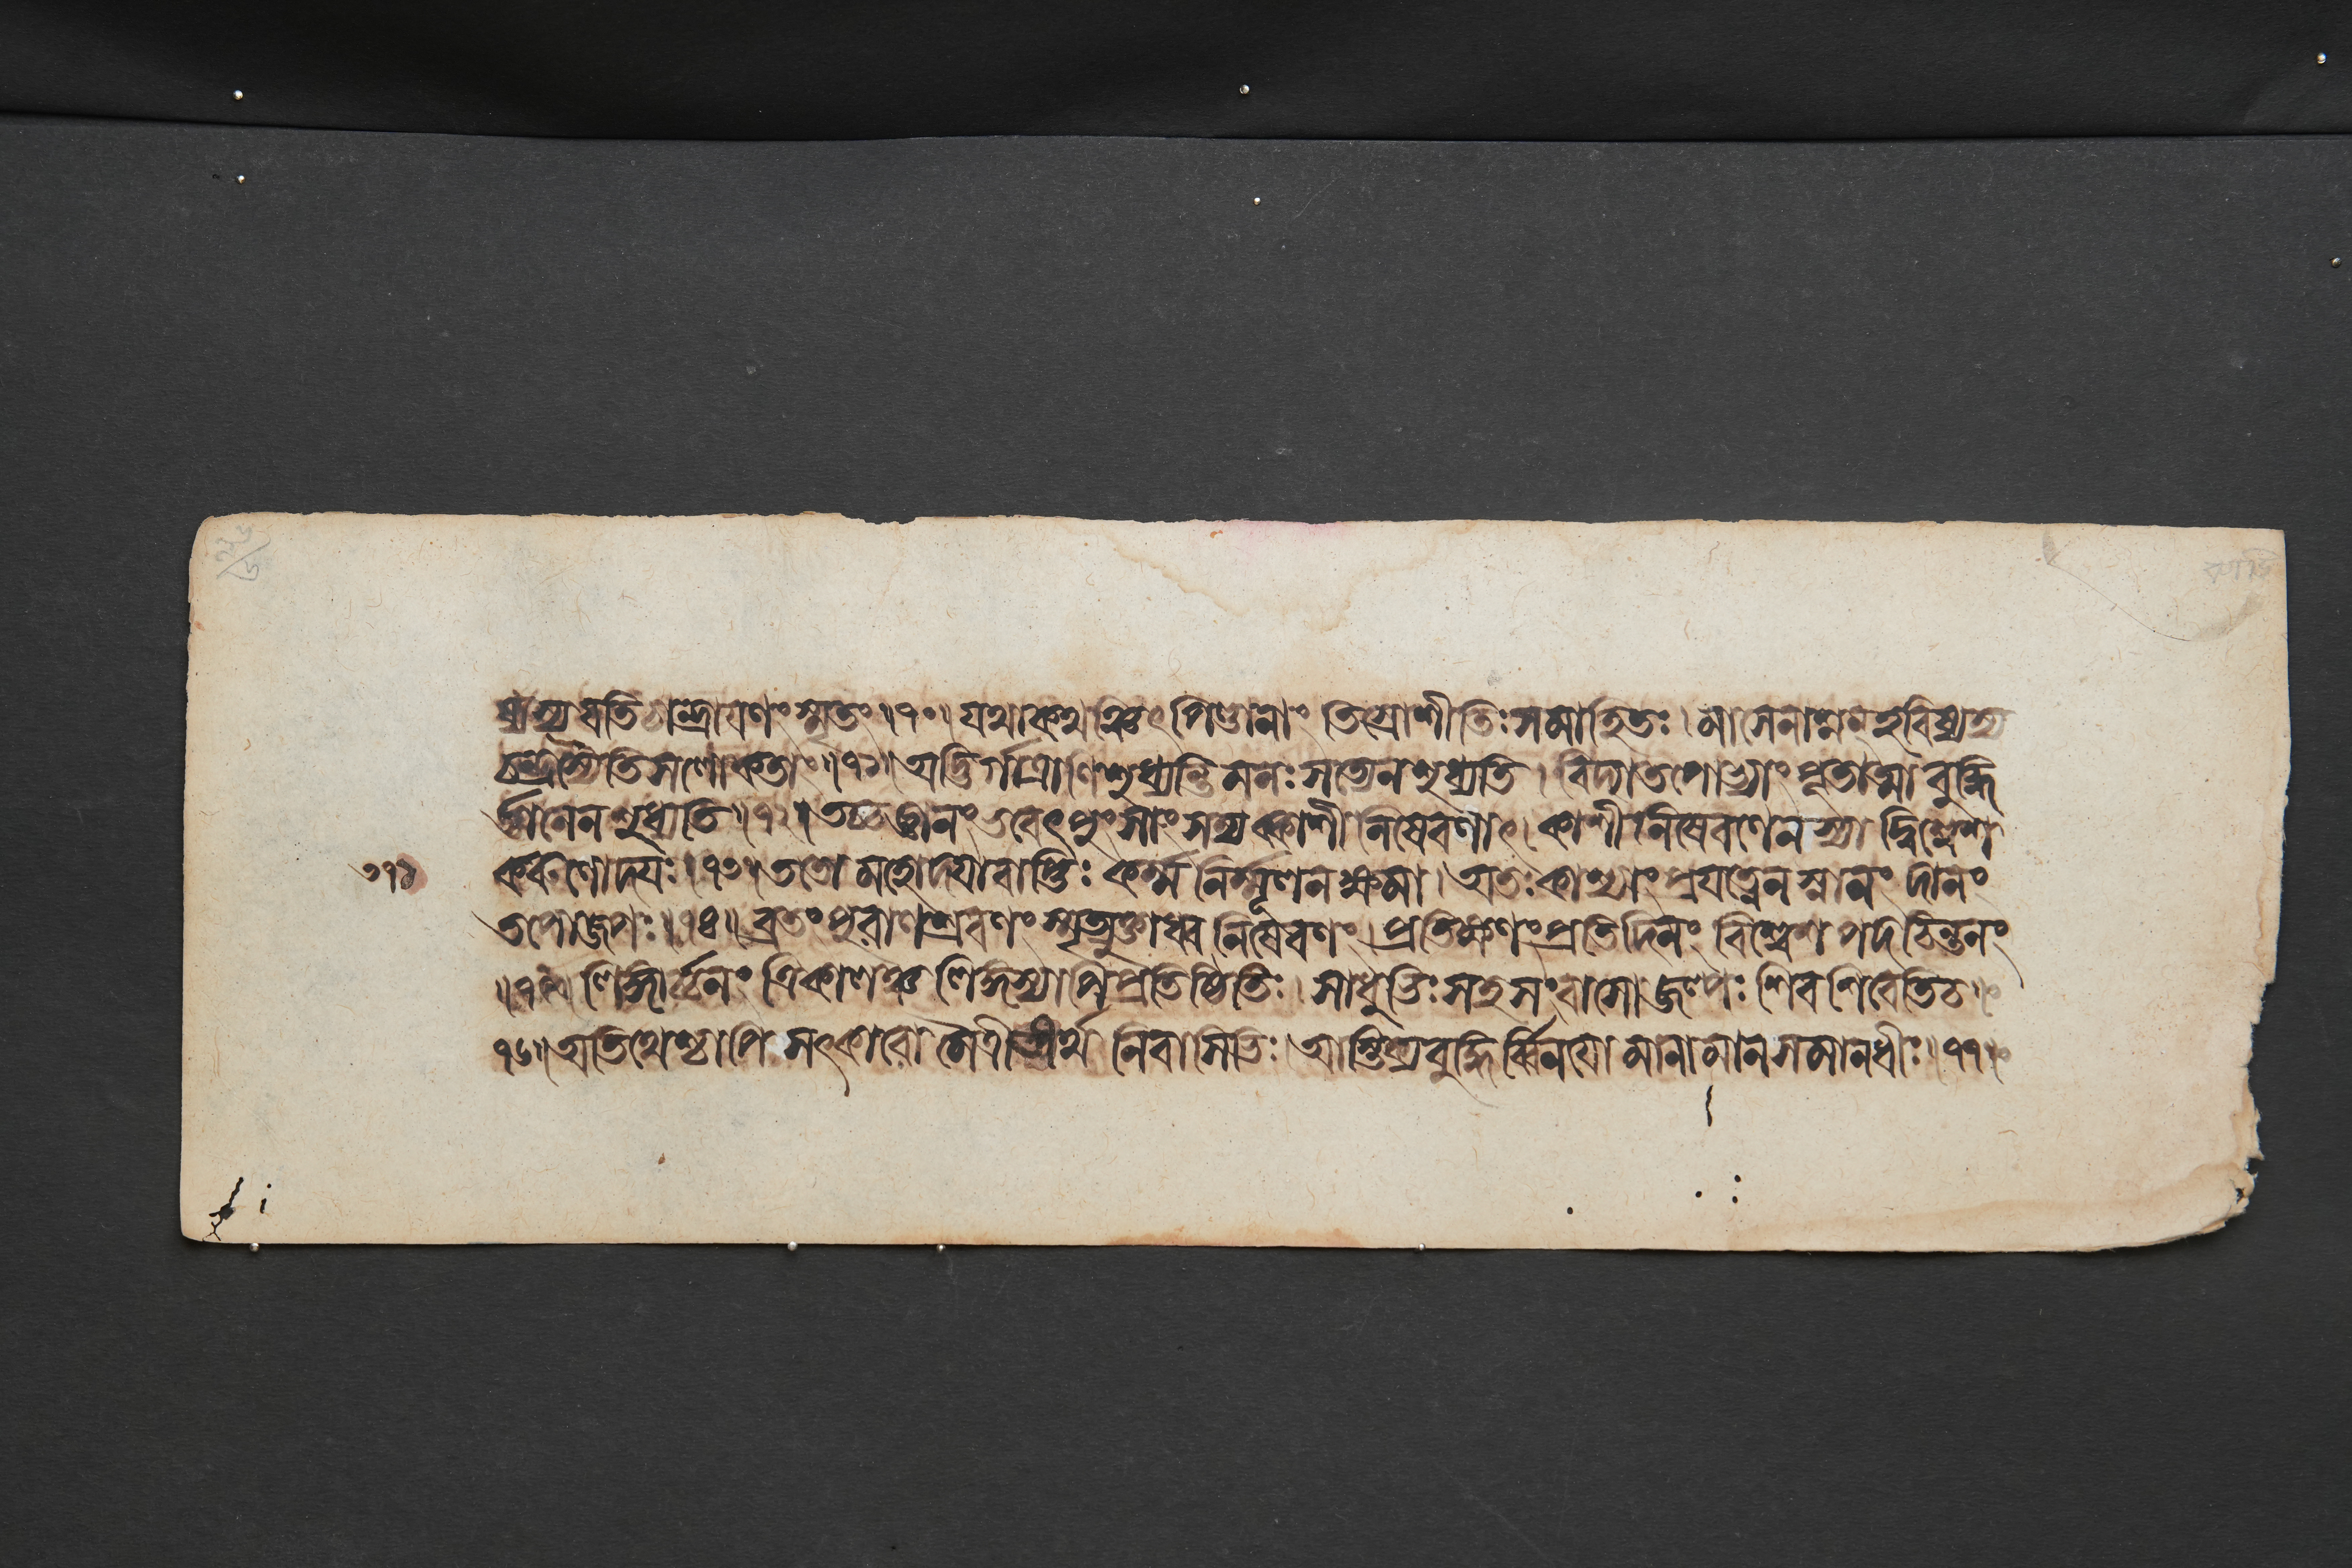 চান্দ্রায়ণং স্মৃতং ॥৭০॥ যথাকথঞ্চিৎ পিণ্ডানাং তিস্রোশীতিঃ সমাহিতঃ। মাসেনাশ্নন্ হবিষ্যস্য
চন্দ্রস্যৈতি সলোকতাং ॥৭১॥ অদ্ভির্গাত্রাণি শুধ্যন্তি মনঃ সত্যেন শুধ্যতি। বিদ্যাতপোভ্যাং ভূতাত্মা বুদ্ধি
র্জ্ঞানেন শুধ্যতি ॥৭২॥ তচ্চ জ্ঞানং ভবেৎ পুংসাং সম্যক্কাশীনিষেবণাৎ। কাশীনিষেবণেন স্যাদ্বিশ্বেশ
করুণোদয়ঃ ॥৭৩॥ ততো মহোদয়াবাপ্তিঃ কর্ম্মনির্ম্মূলনক্ষমা। অতঃ কাশ্যাং প্রযত্নেন স্নানং দানং
তপোজপঃ ॥৭৪॥ ব্রতং পুরাণশ্রবণং স্মৃত্যুক্তাধ্বনিষেবণং। প্রতিক্ষণং প্রতিদিনং বিশ্বেশপদচিন্তনং
॥৭৫॥ লিঙ্গার্চ্চনং ত্রিকালঞ্চ লিঙ্গস্যাপি প্রতিষ্ঠিতিঃ। সাধুভিঃ সহ সংবাসো জল্পঃ শিবশিবেতি চ॥
৭৬॥ অতিথেশ্চাপি সৎকারো মৈত্রীতীর্থনিবাসিভিঃ। আস্তিক্যবুদ্ধির্ব্বিনয়ো মানামানসমানধীঃ ॥৭৭॥